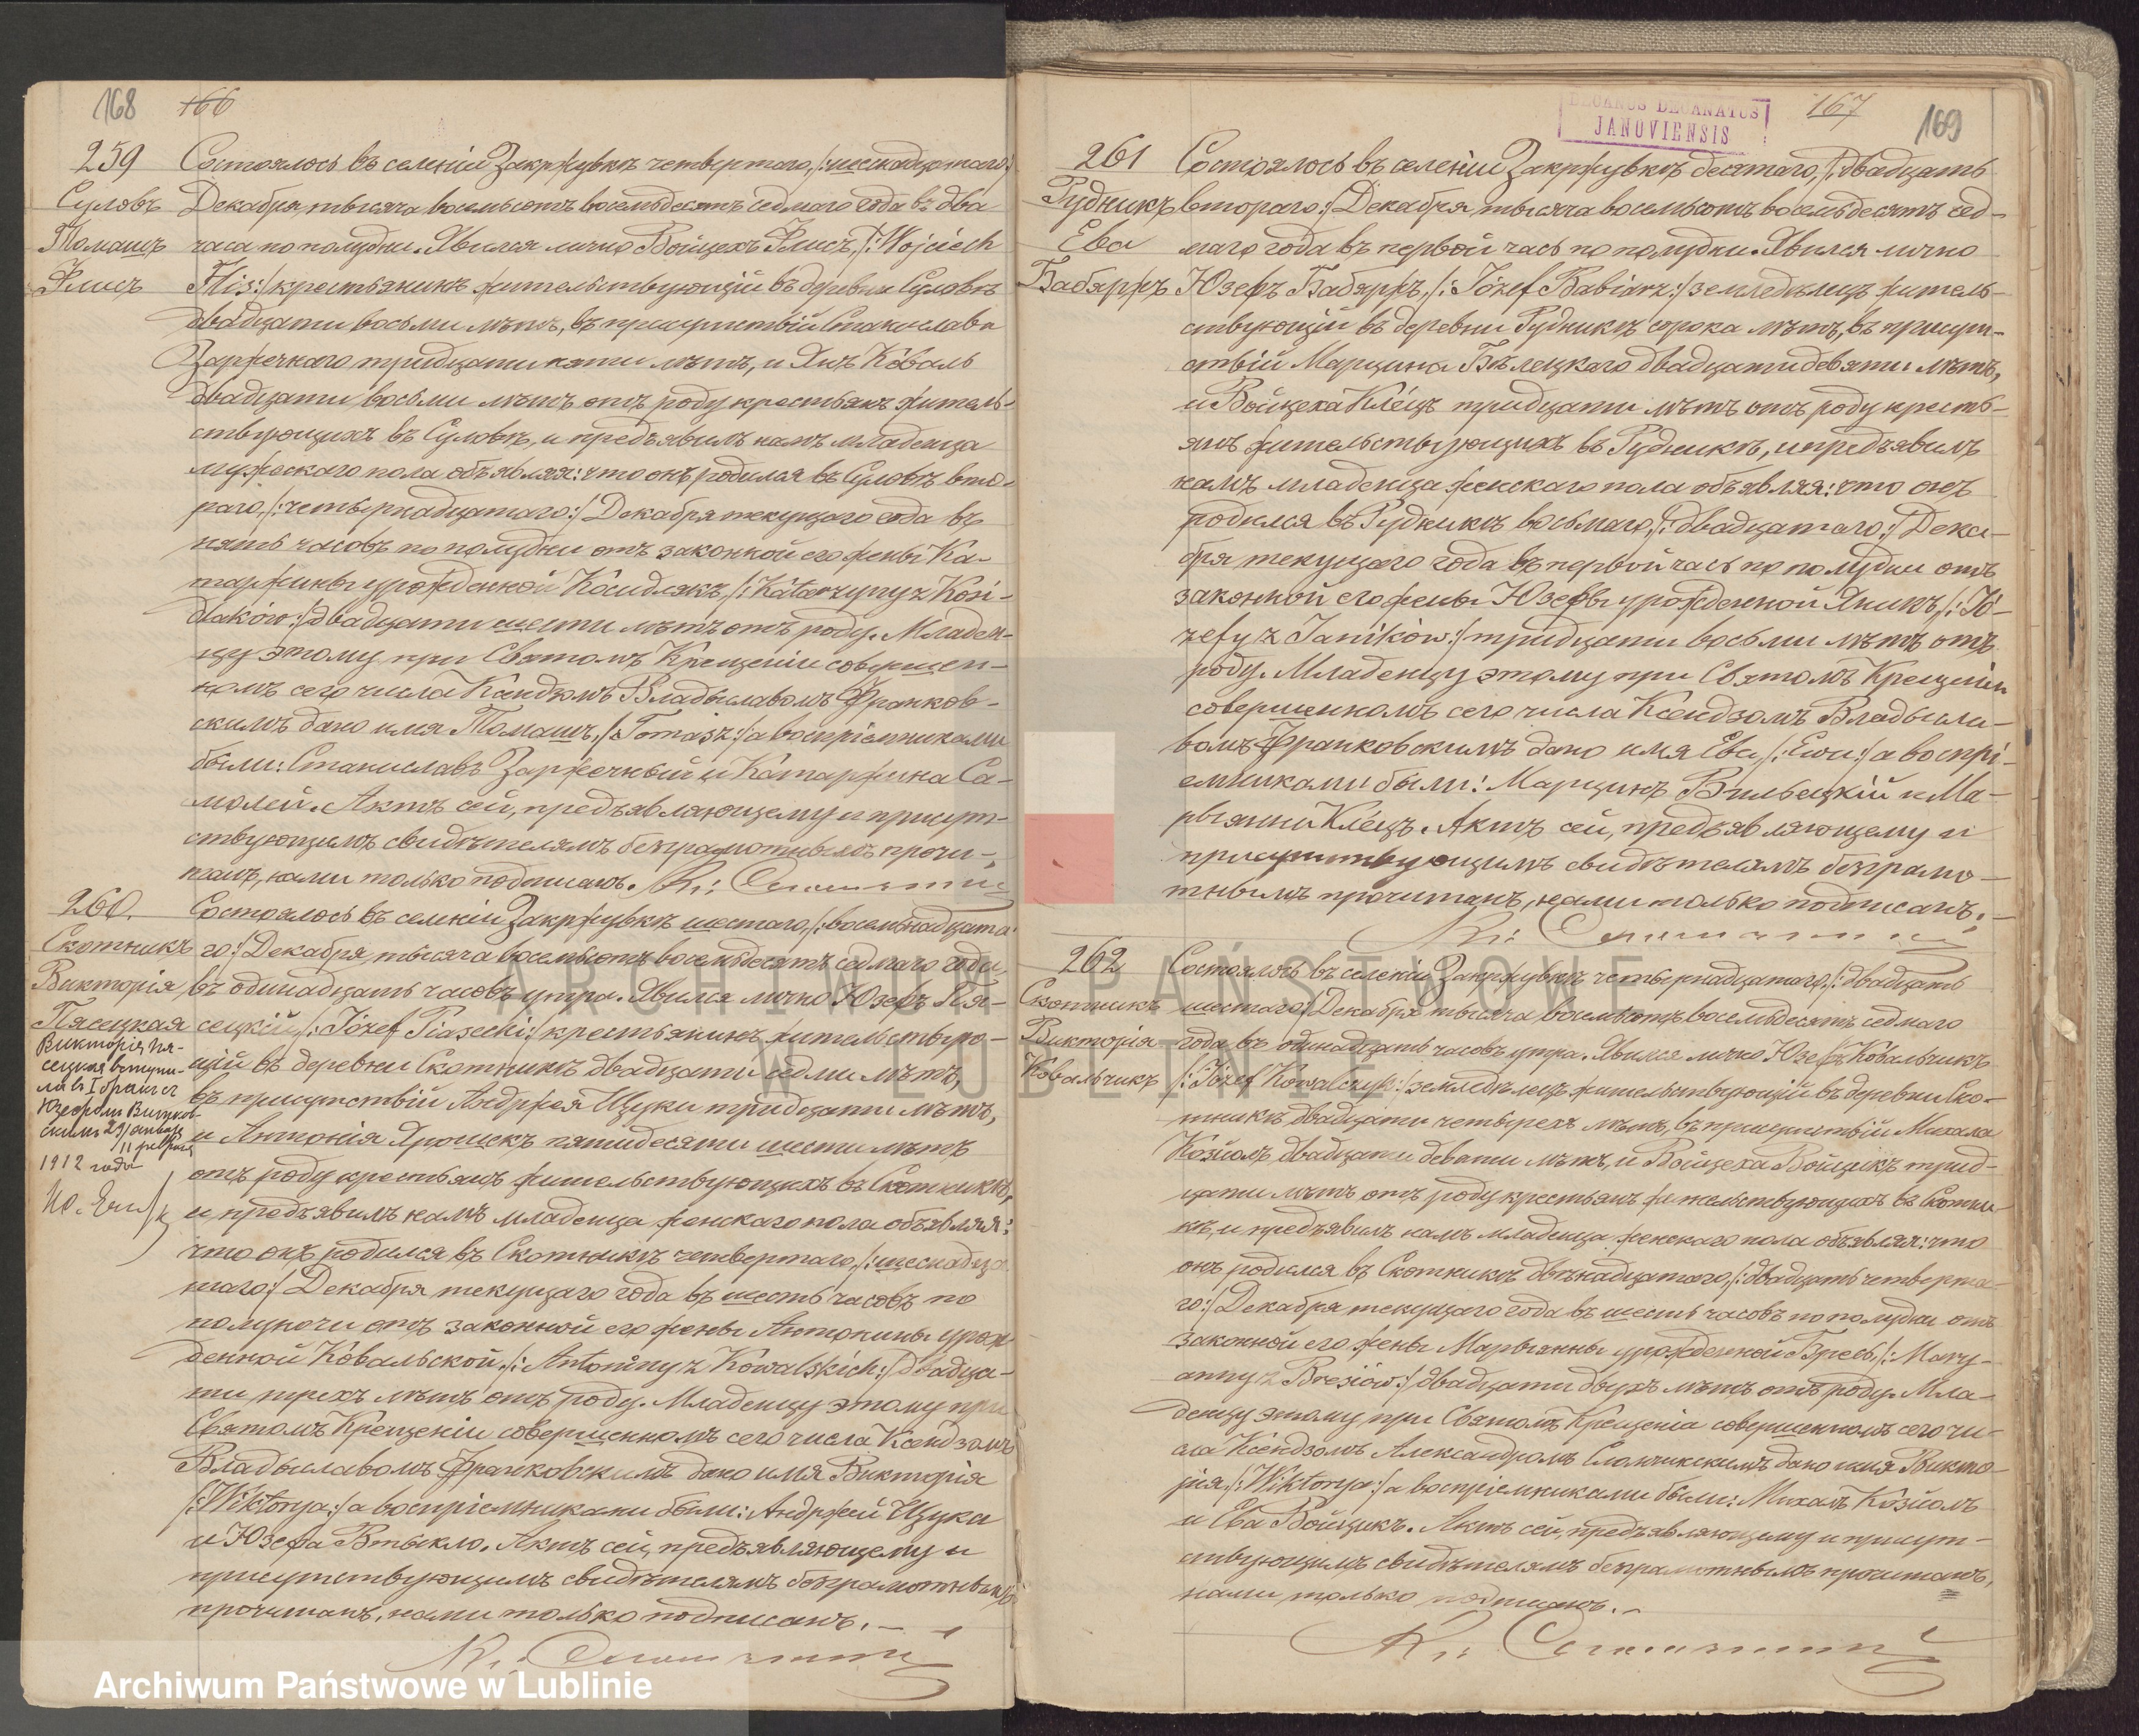 168 166
259 Состоялось въ селеніи Закржувкѣ четвертаго /:шеснадцатаго:/
Суловъ Декабря, тысяча восемьсотъ восемьдесятъ седмаго года въ два
Томашъ часа по полудни. Явился лично Войцехъ Флисъ, /:Wojciech
Флисъ Flis:/ крестьянинъ жительствующій въ деревни Суловѣ
двадцати восьми лѣтъ, въ присутствіи Станислава
Заржечнаго тридцати пяти лѣтъ, и Янъ Коваль
двадцати восьми лѣтъ отъ роду крестьянъ житель-
ствующихъ въ Суловѣ, и предъявилъ намъ младенца
мужескаго пола объявляя: что онъ родился въ Суловѣ вто-
раго, /:четырнадцатаго:/ Декабря текущаго года въ
пять часовъ по полудни отъ законной его жены Ка-
таржины урожденной Косидлякъ, /:Katarzyny z Kosi-
dlaków:/ двадцати шести лѣтъ отъ роду. Младен-
цу этому при Святомъ Крещеніи совершен-
номъ сего числа Ксендзомъ Владыславомъ Франков-
скимъ дано имя Томашъ, /:Tomasz:/ а воспріемниками
были: Станиславъ Заржечный и Катаржина Са-
молей. Актъ сей, предъявляющему и присут-
ствующимъ свидѣтелямъ безграмотнымъ прочи-
танъ, нами только подписанъ.
260. Состоялось въ селеніи Закржувкѣ шестаго, /:восемьнадцата-
Скотникъ го:/ Декабря, тысяча восемьсотъ восемьдесятъ седмаго года,
Викторія въ одинадцать часовъ утра. Явился лично Юзефъ Пя-
Пясецкая сецкій, /:Józef Piasecki:/ крестьянинъ жительствую-
Викторія Пя-
сецкая вступи-
ла въ бракъ съ
Юзефомъ Витков-
скимъ 29 января
11 февраля
1912 года
щій въ деревни Скотникѣ двадцати седми лѣтъ,
въ присутствіи Андржея Щуки тридцати лѣтъ,
и Антонія Ярошекъ пятидесяти шести лѣтъ
отъ роду крестьянъ жительствующихъ въ Скотникѣ,
и предъявилъ намъ младенца женскаго пола объявляя:
что онъ родился въ Скотникѣ четвертаго, /:шеснадца-
таго:/ Декабря текущаго года въ шесть часовъ по
полуночи отъ законной его жены Антонины урож-
денной Ковальской, /:Antoniny z Kowalskich:/ двадца-
ти трехъ лѣтъ отъ роду. Младенцу этому при
Святомъ Крещеніи совершенномъ сего числа Ксендзомъ
Владыславомъ Франковскимъ дано имя Викторія
/:Wiktorya:/ а воспріемниками были: Андржей Щука
и Юзефа Втыкло. Актъ сей, предъявляющему и
присутствующимъ свидѣтелямъ безграмотнымъ
прочитанъ, нами только подписанъ.
DECANUS DECANATUS
JANOVIENSIS
167 169
261 Состоялось въ селеніи Закржувкѣ десятаго, /:двадцать
Рудникъ втораго:/ Декабря, тысяча восемьсотъ восемьдесятъ сед-
Ева маго года въ первой часъ по полудни. Явился лично
Бабяржъ Юзефъ Бабяржъ, /:Józef Babiarz:/ земледѣлецъ житель-
ствующій въ деревни Рудникѣ сорока лѣтъ, въ присут-
ствіи Марцина Бѣлецкаго двадцати девяти лѣтъ,
и Войцеха Клецъ тридцати лѣтъ отъ роду кресть-
янъ жительствующихъ въ Рудникѣ, и предъявилъ
намъ младенца женскаго пола объявляя: что онъ
родился въ Рудникѣ восьмаго, /:двадцатаго:/ Дека-
бря текущаго года въ первой часъ по полудни отъ
законной его жены Юзефы урожденной Яникъ, /:Jó-
zefy z Janików:/ тридцати восьми лѣтъ отъ
роду. Младенцу этому при Святомъ Крещеніи
совершенномъ сего числа Ксендзомъ Владысла-
вомъ Франковскимъ дано имя Ева, /:Ewa:/ а воспрі-
емниками были: Марцинъ Бѣлецкій и Ма-
рыянна Клецъ. Актъ сей, предъявляющему и
присутствующимъ свидѣтелямъ безграмо-
тнымъ прочитанъ, нами только подписанъ.
262 Состоялось въ селеніи Закржувкѣ четырнадцатаго, /:двадцать
Скотникъ шестаго:/ Декабря тысяча восемьсотъ восемьдесятъ седмаго
Викторія года въ одинадцать часовъ утра. Явился лично Юзефъ Ковальчикъ
Ковальчикъ /:Józef Kowalczyk:/ земледѣлецъ жительствующій въ деревни Ско-
тникѣ двадцати четырехъ лѣтъ, въ присутствіи Михала
Козіолъ двадцати девяти лѣтъ, и Войцеха Войцикъ трид-
цати лѣтъ отъ роду крестьянъ жительствующихъ въ Скотни-
кѣ, и предъявилъ намъ младенца женскаго пола объявляя: что
онъ родился въ Скотникѣ двѣнадцатаго, /:двадцать четверта-
го:/ Декабря текущаго года въ шесть часовъ по полудни отъ
законной его жены Марыанны урожденной Бресь, /:Mary-
anny z Bresiów:/ двадцати двухъ лѣтъ отъ роду. Мла-
денцу этому при Святомъ Крещеніи совершенномъ сего чи-
сла Ксендзомъ Александромъ дано имя Викто-
рія, /:Wiktorya:/ а воспріемниками были: Михалъ Козіолъ
и Ева Войцикъ. Актъ сей, предъявляющему и присут-
ствующимъ свидѣтелямъ безграмотнымъ прочитанъ,
нами только подписанъ.
ARCHIWUM PAŃSTWOWE
W LUBLINIE
Archiwum Państwowe w Lublinie